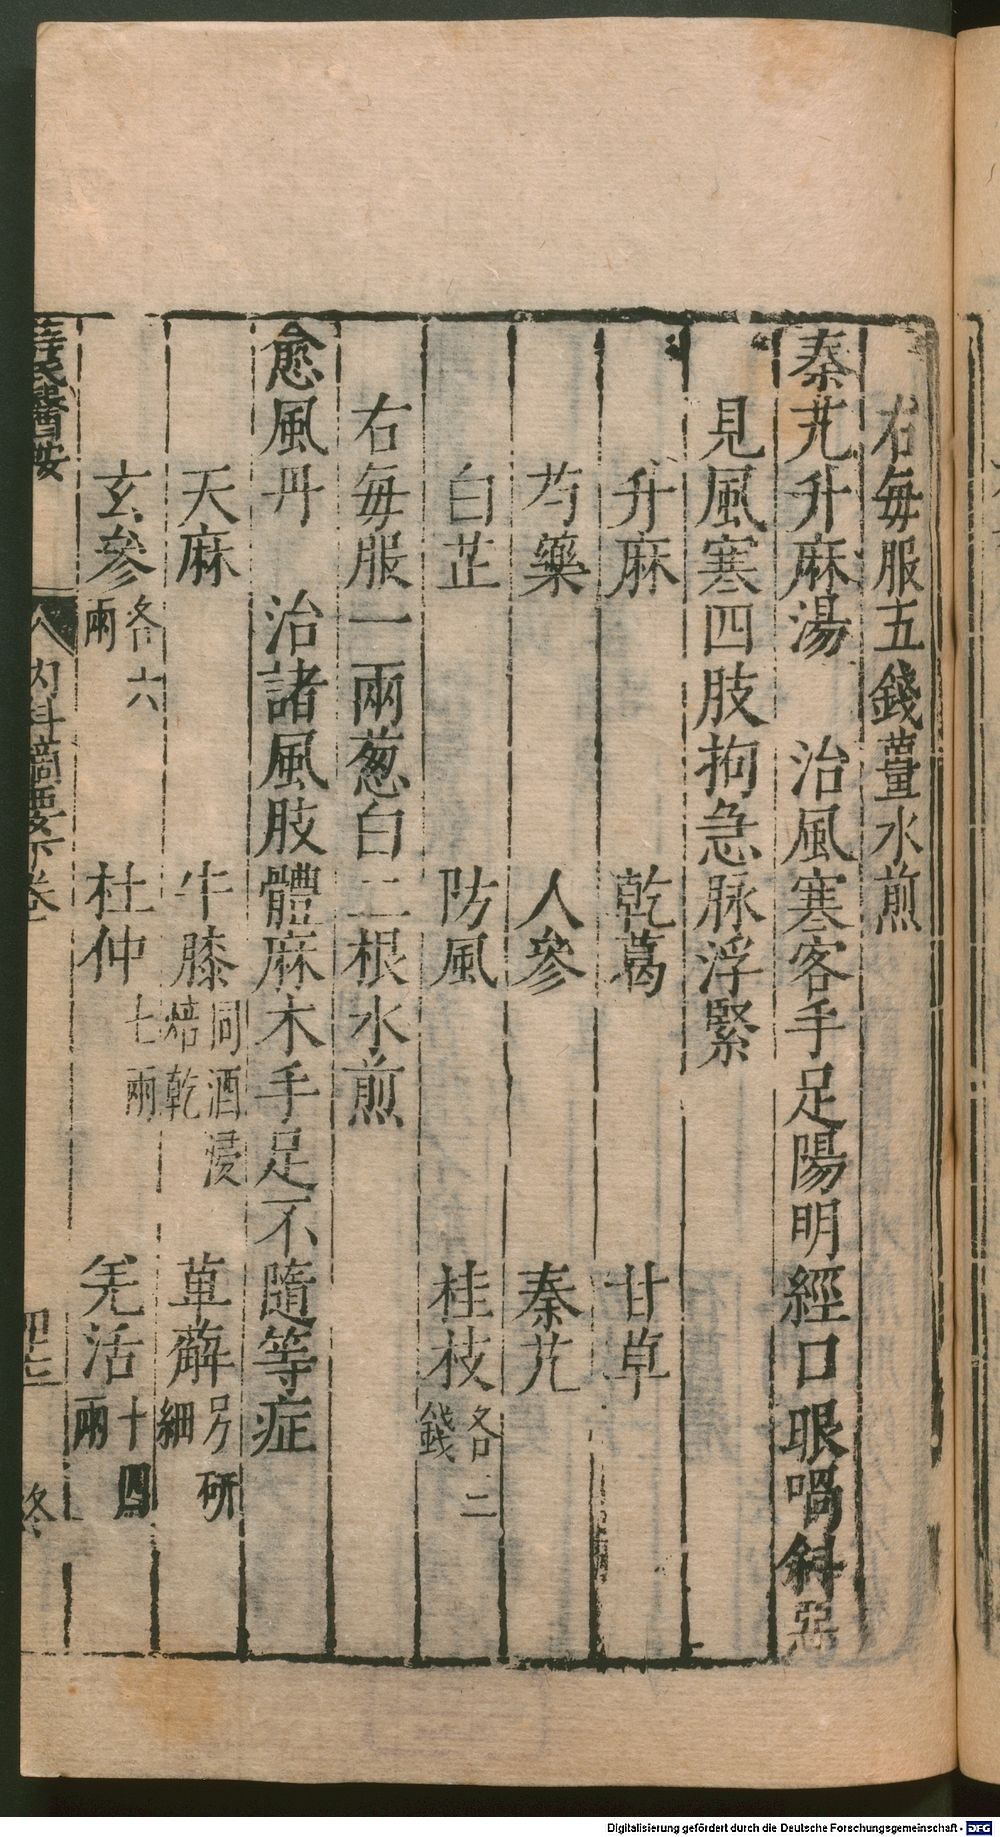 右每服五錢薑水煎
秦艽升麻湯　治風寒客手足陽明經口眼喎斜惡
見風寒四肢拘急脉浮緊
升麻　乾葛　甘草
芍藥　人參　秦艽
白芷　防風　桂枝各二錢
右每服一兩葱白二根水煎
愈風丹　治諸風肢體麻木手足不隨等症
天麻　牛膝同酒浸焙乾　萆薢另研細
玄參各六兩　杜仲七兩　羌活十四兩
薛氏醫按　內科摘要下卷
Digitalisierung gefördert durch die Deutsche Forschungsgemeinschaft - DFG